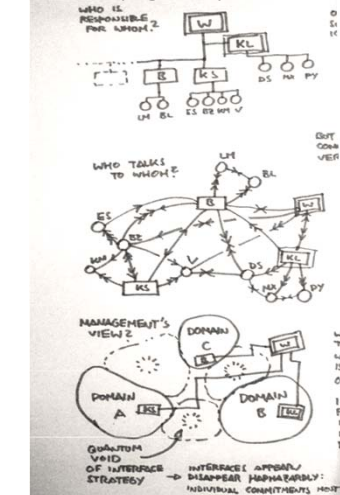 WHO IS
RESPONSIBLE
FOR WHOM?
W
KL
B
KS
DS
PY
LM BL
ES BZ KM V
WHO TALKS
TO WHOM?
LM
BL
B
W
ES
BZ
KM
V
DS
KL
KS
PY
MANAGEMENT'S
VIEW?
DOMAIN
C
B
W
DOMAIN
A
KS
DOMAIN
B
KL
QUANTUM
VOID
OF INTERFACE
STRATEGY
→ INTERFACES APPEAR/
DISAPPEAR HAPHAZARDLY:
INDIVIDUAL COMMITMENTS